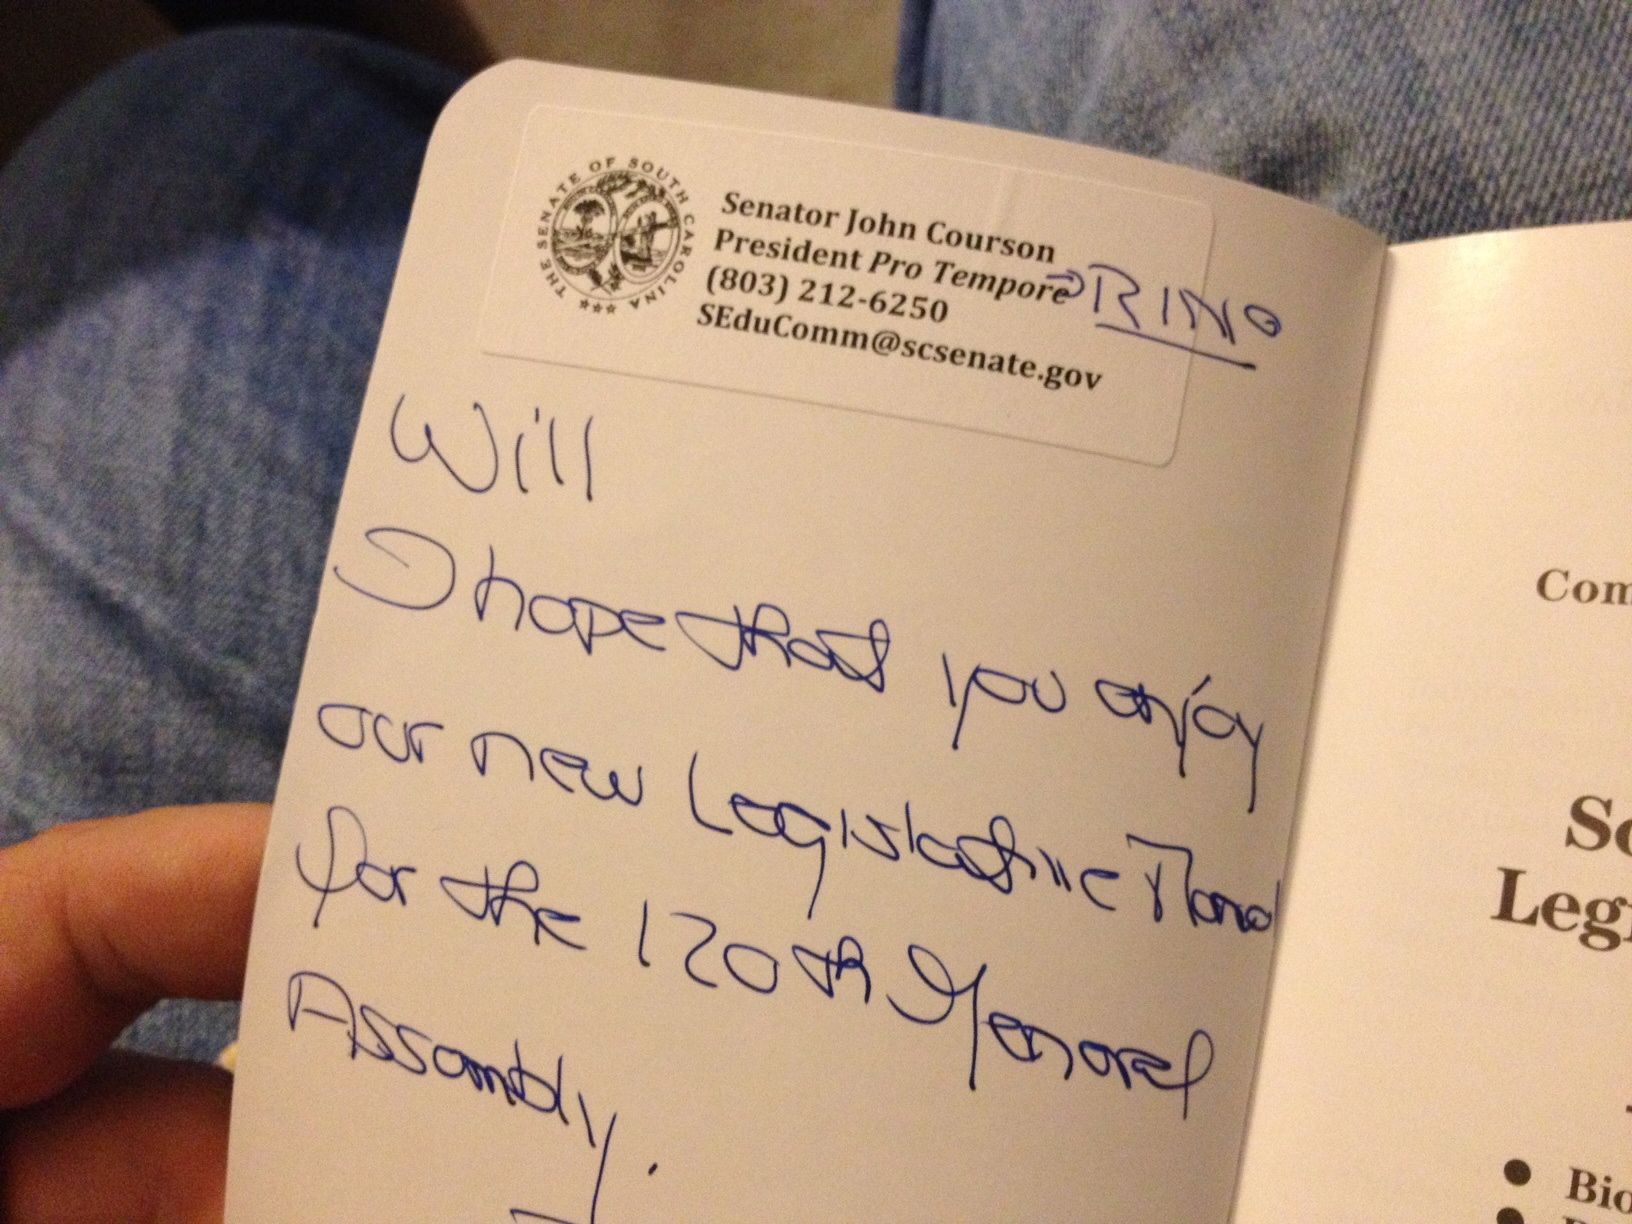 THE SENATE OF SOUTH CAROLINA
Senator John Courson
President Pro Tempore
RINO
(803) 212-6250
SEduComm@scsenate.gov
Will
I hope that you enjoy
our new Legislative
for the 120th General
Assembly.
Com
So
Legi
Bio